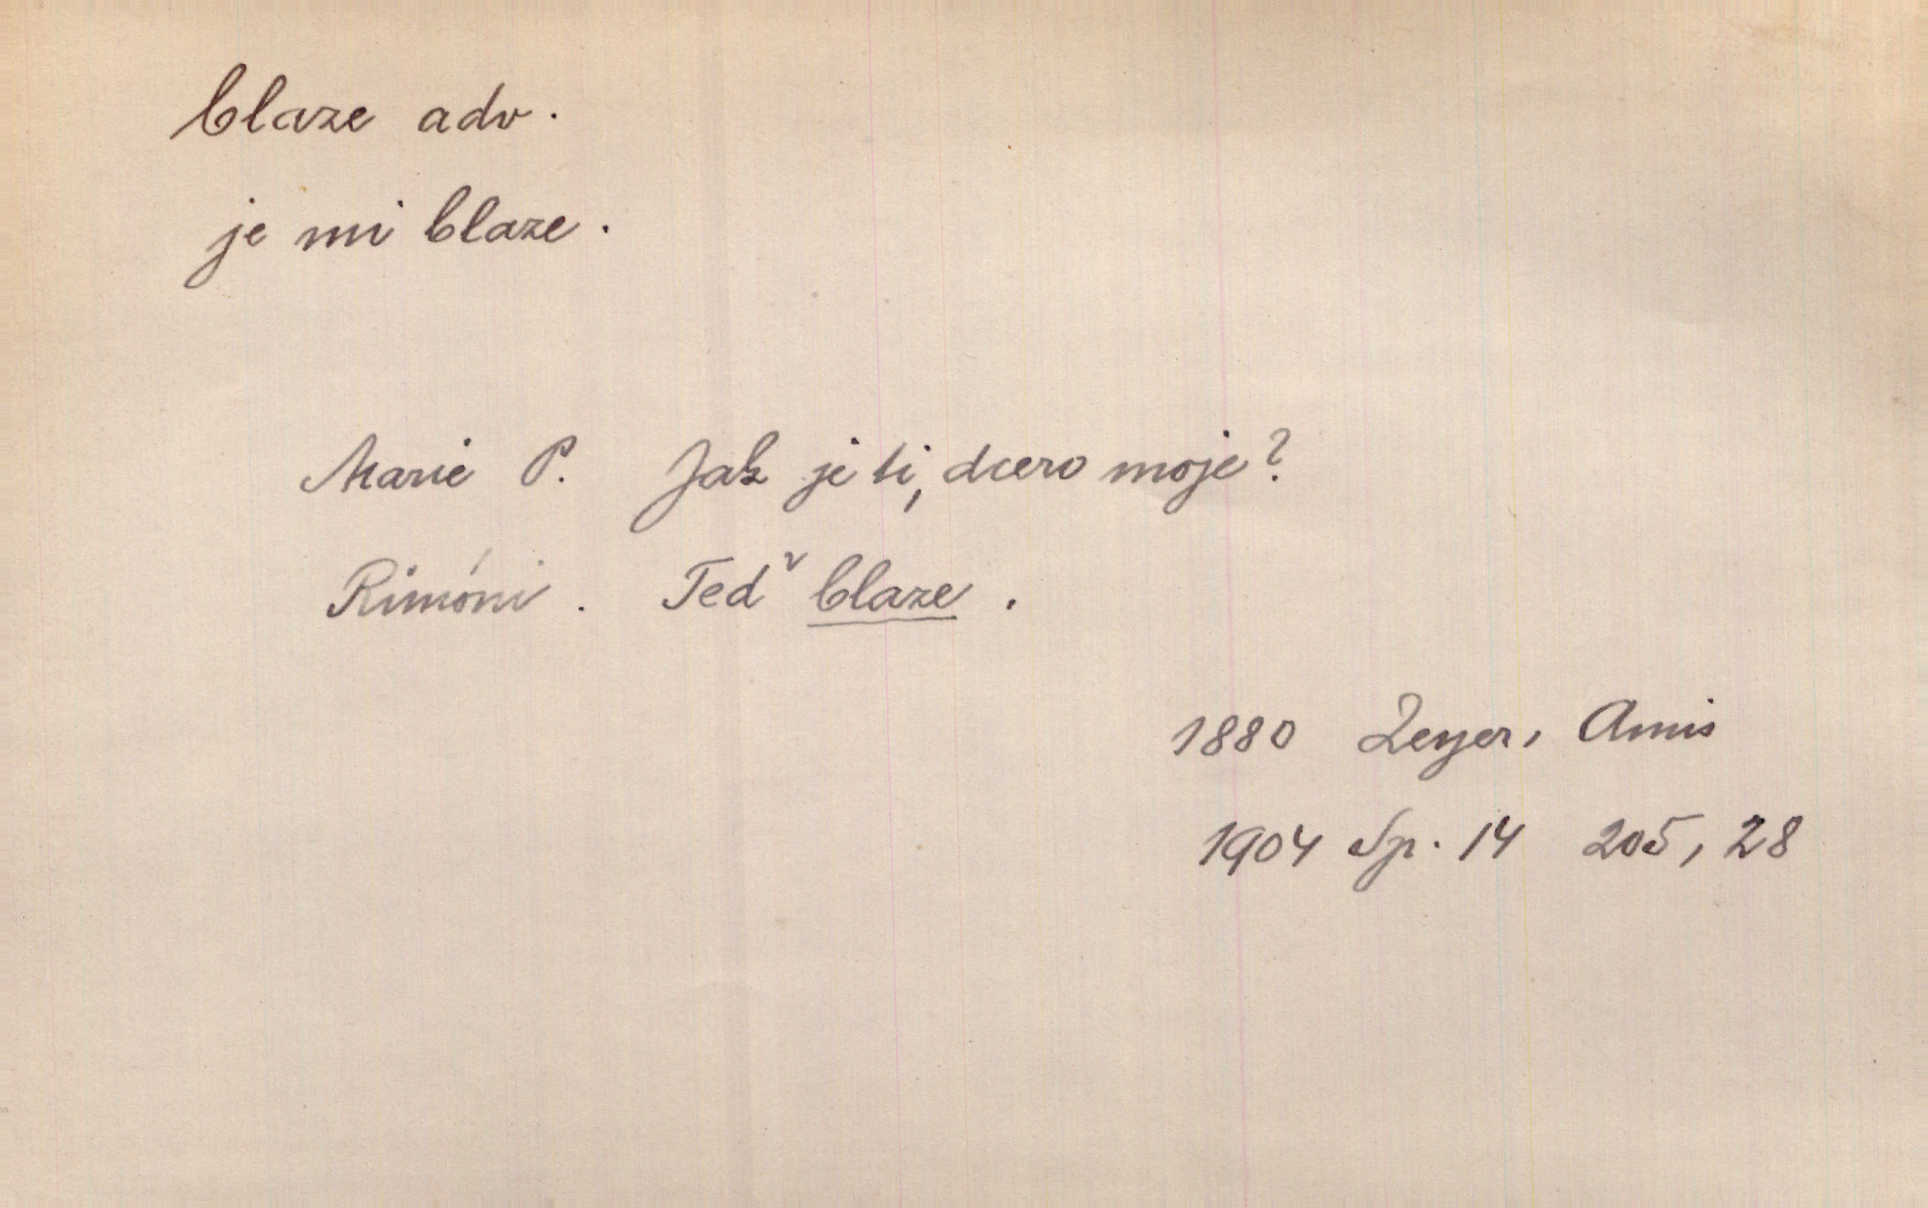 blaze adv.
je mi blaze.
Marie P. Jak je ti, dcero moje?
Rimóni. Teď blaze.
1880 Zeyer, Amis
1904 Sp. 14 205, 28